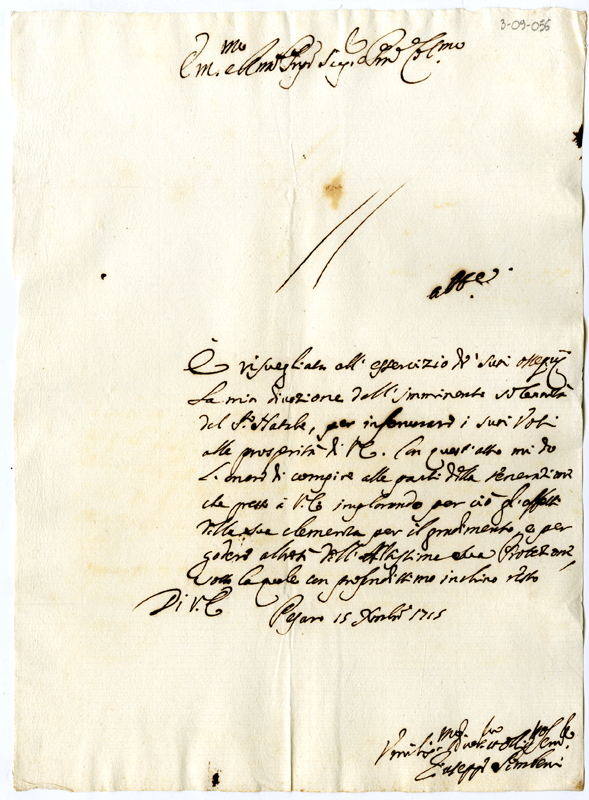 3-09-056
Em.mo e Rmo Sig.r Sig.r e Pron Col.mo
È risvegliata all' essercizio de' suoi ossequij
la mia divozione dall' imminente solennità
del S.o Natale, per infervorare i suoi Voti
alle prosperità di V.E. Con quest' atto mi do
l' onore di compire alle parti della venerazione
che presto à V.E. implorando per ciò gli effetti
della sua clemenza per il gradimento, e per
godere dell' Altissima sua Protezione,
sotto la quale con profondissimo inchino resto
Di V.E.
Pesaro 15 Xmbre 1715
Giuseppe